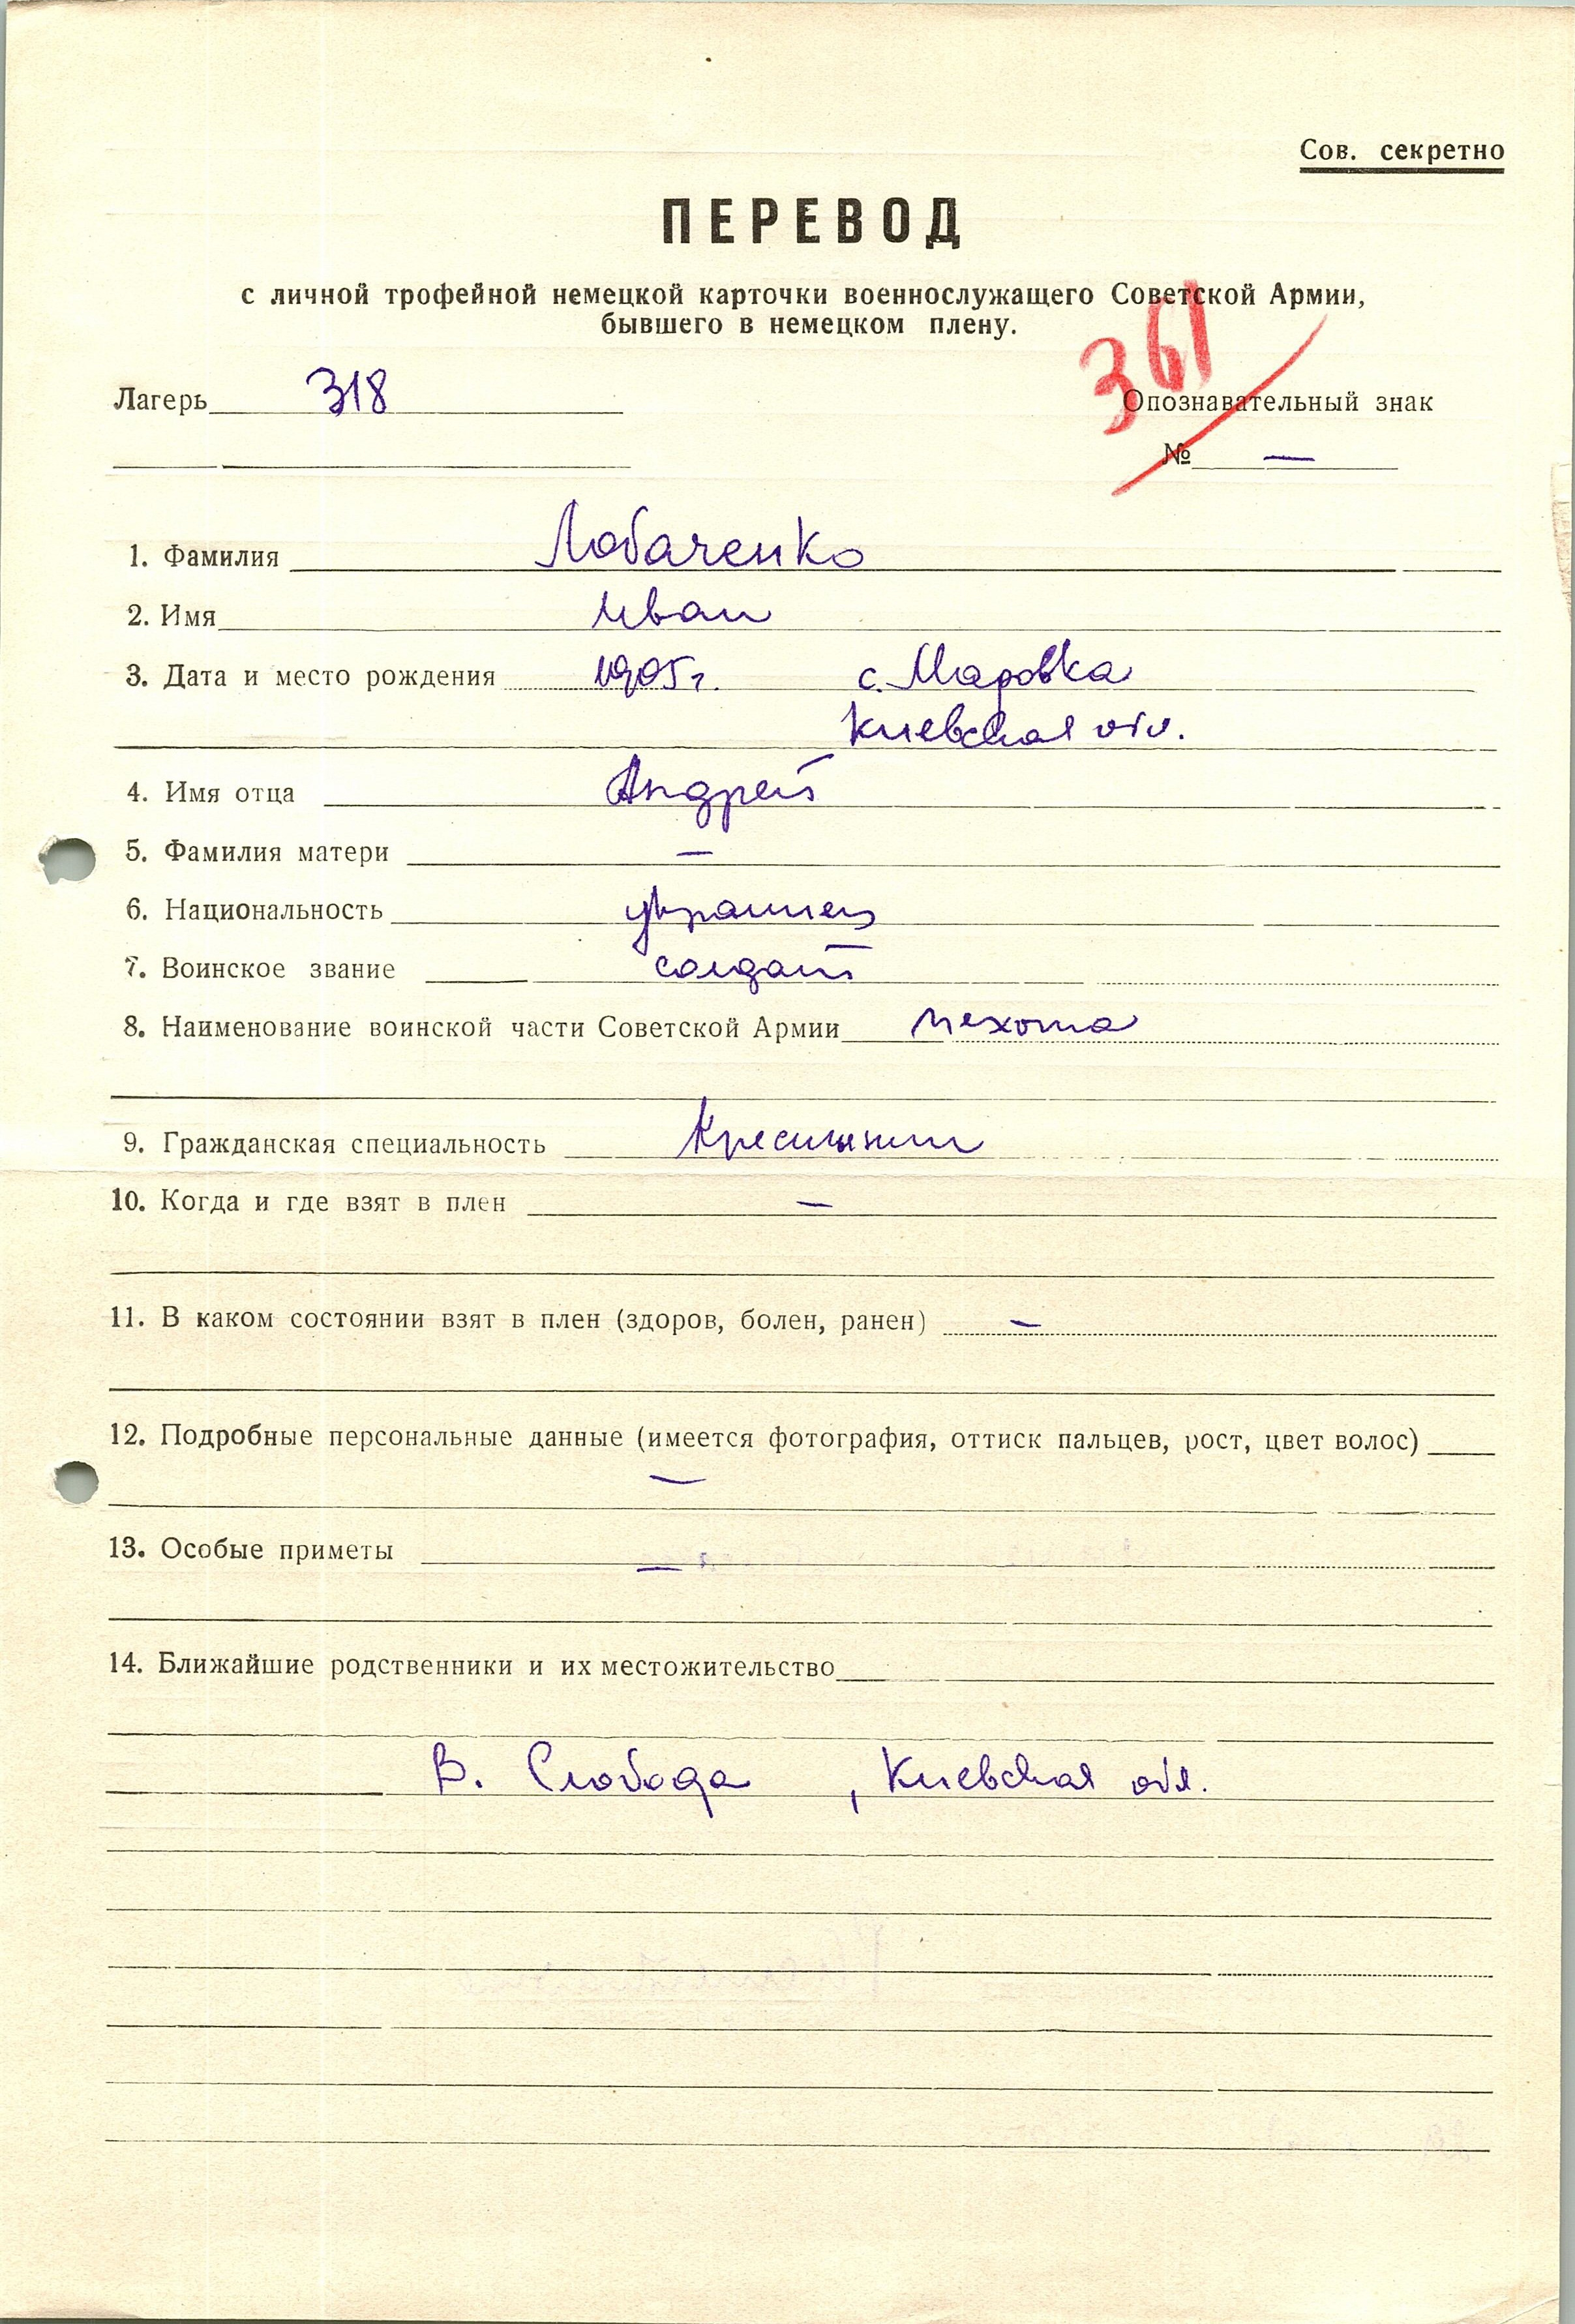 Сов. секретно
ПЕРЕВОД
с личной трофейной немецкой карточки военнослужащего Советской Армии,
бывшего в немецком плену.
361
Лагерь 318 Опознавательный знак
№ —
1. Фамилия Лобаченко
2. Имя Иван
3. Дата и место рождения 1905 г. с. Маровка
Киевская обл.
4. Имя отца Андрей
5. Фамилия матери —
6. Национальность украинец
7. Воинское звание солдат
8. Наименование воинской части Советской Армии пехота
9. Гражданская специальность Крестьянин
10. Когда и где взят в плен —
11. В каком состоянии взят в плен (здоров, болен, ранен) —
12. Подробные персональные данные (имеется фотография, оттиск пальцев, рост, цвет волос)
—
13. Особые приметы —
14. Ближайшие родственники и их местожительство
В. Слобода , Киевская обл.